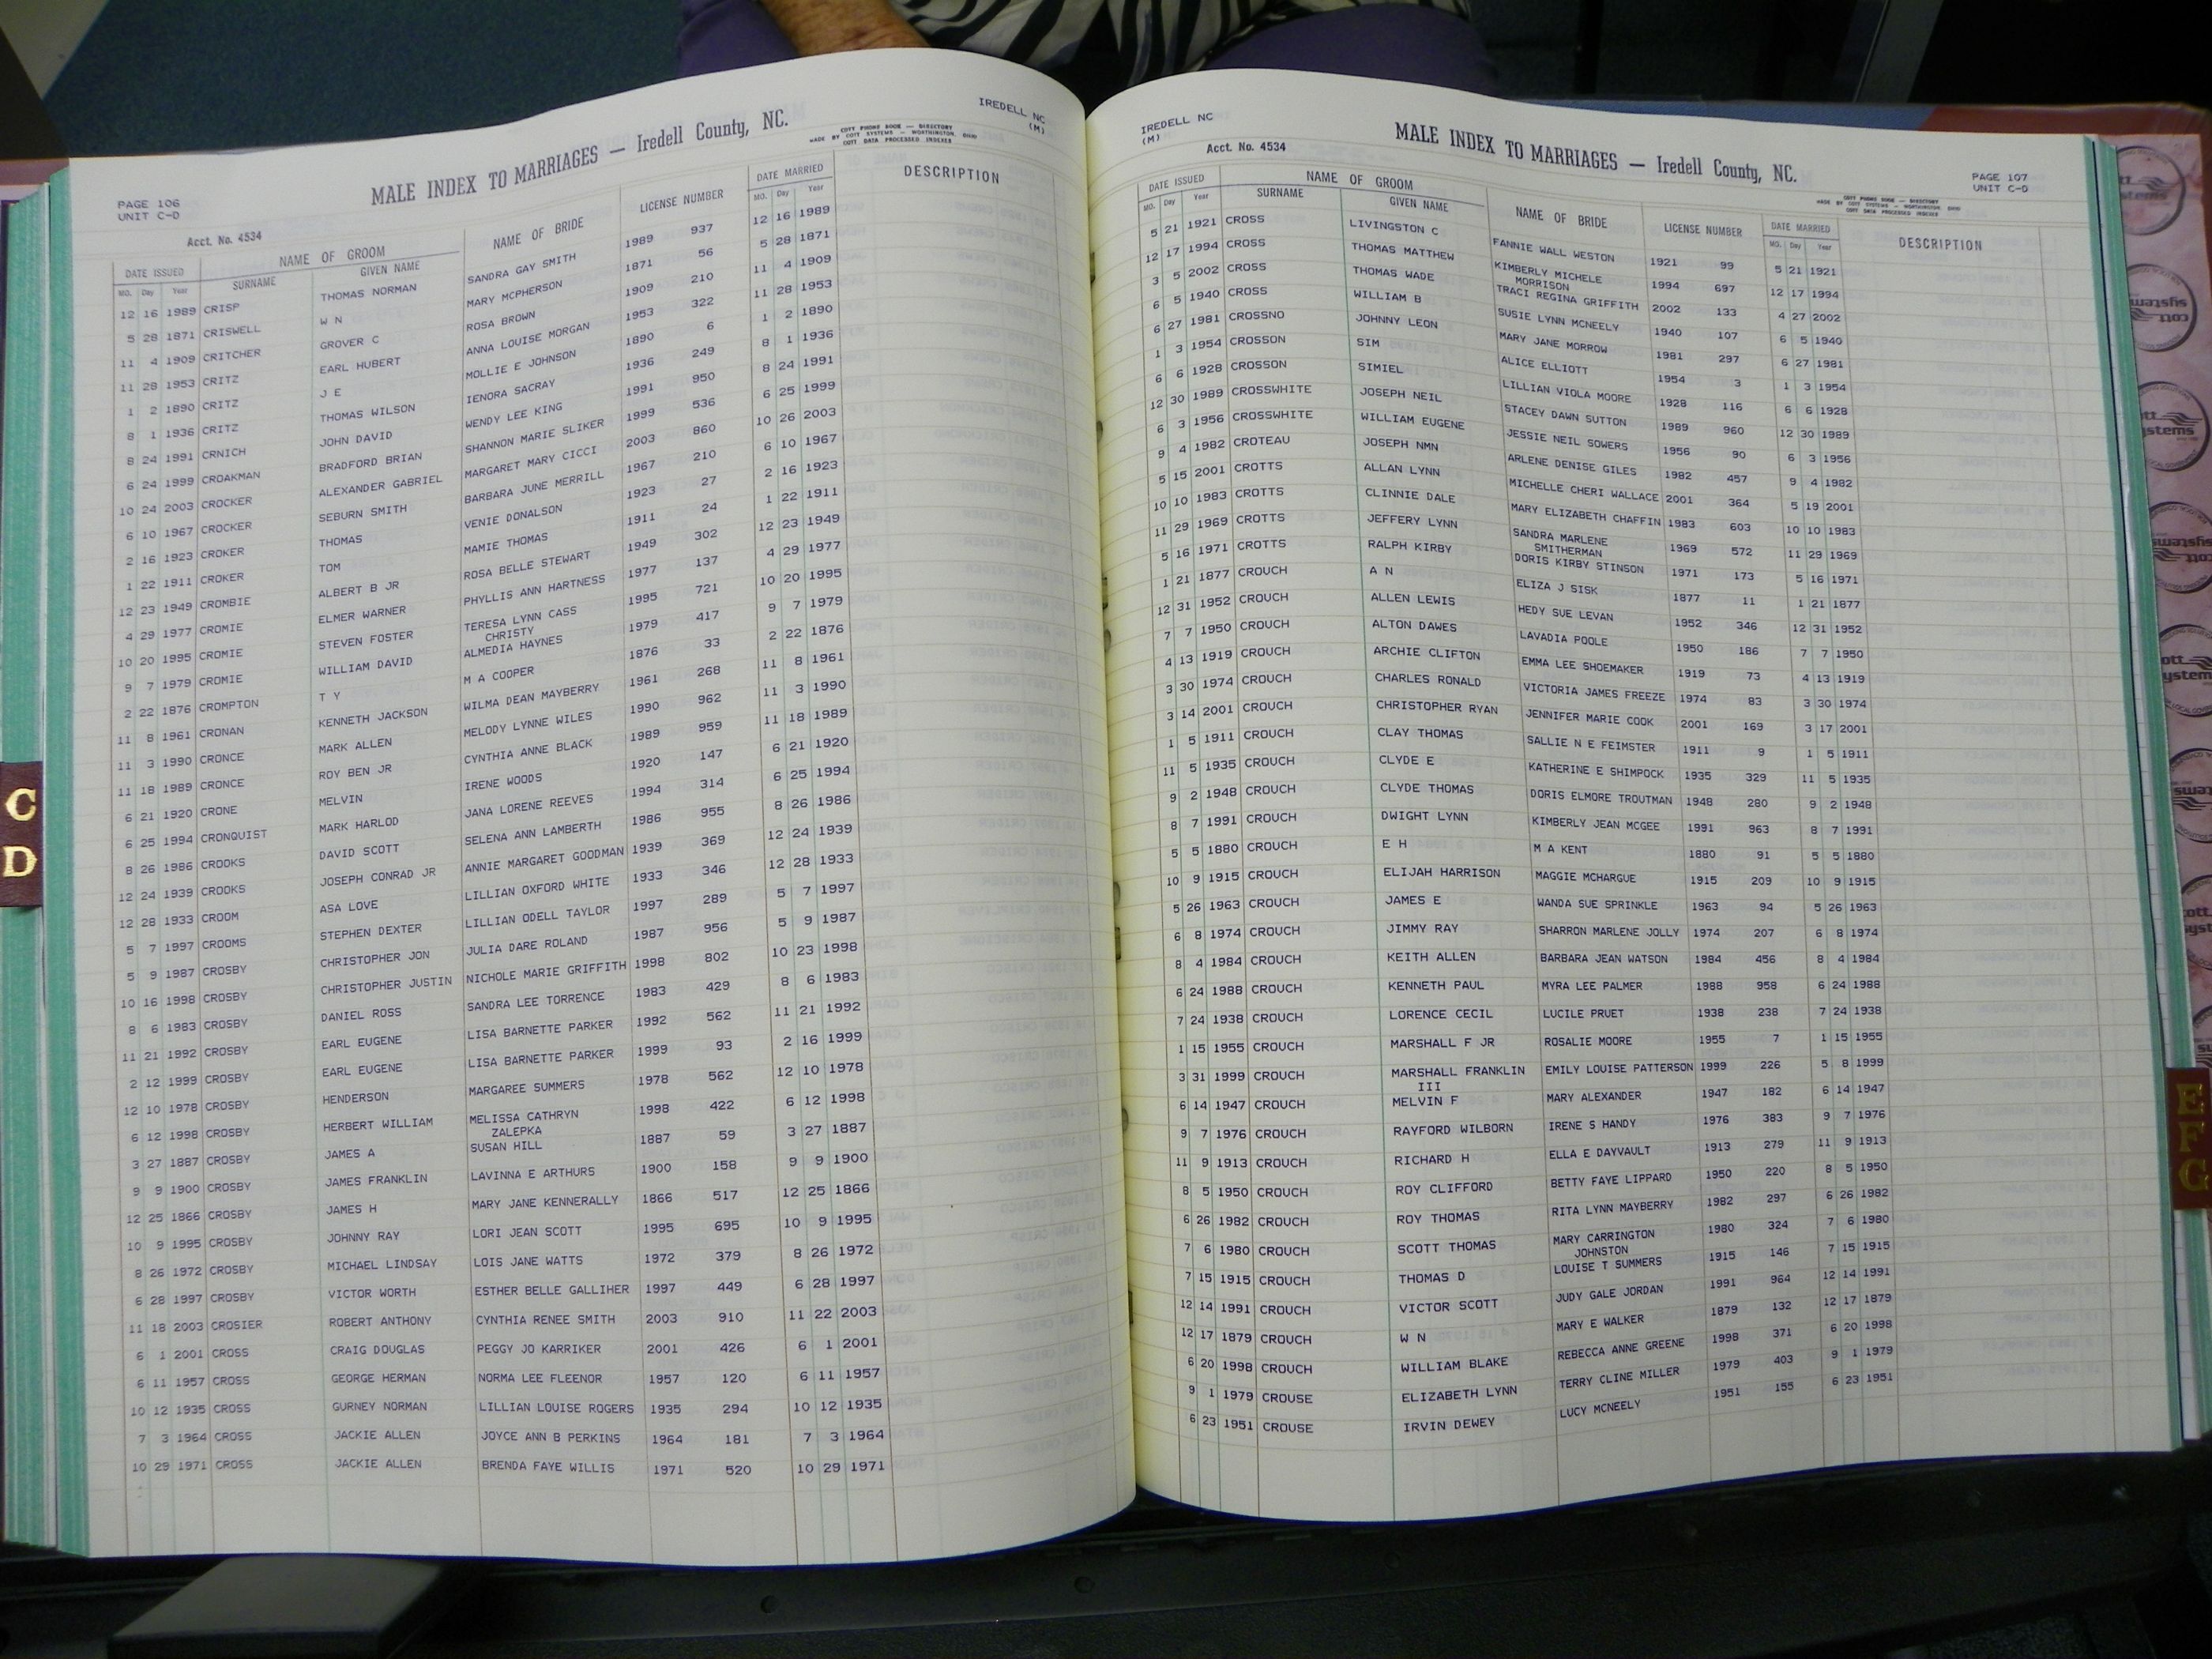 IREDELL NC
(M)
COTT PHONE BOOK — DIRECTORY
MADE BY COTT SYSTEMS — WORTHINGTON, OHIO
COTT DATA PROCESSED INDEXES
MALE INDEX TO MARRIAGES — Iredell County, NC.
PAGE 106
UNIT C-D
Acct. No. 4534
DATE ISSUED NAME OF GROOM NAME OF BRIDE LICENSE NUMBER DATE MARRIED DESCRIPTION
MO. Day Year SURNAME GIVEN NAME MO. Day Year
12 16 1989 CRISP THOMAS NORMAN SANDRA GAY SMITH 1989 937 12 16 1989
5 28 1871 CRISWELL W N MARY MCPHERSON 1871 56 5 28 1871
11 4 1909 CRITCHER GROVER C ROSA BROWN 1909 210 11 4 1909
11 28 1953 CRITZ EARL HUBERT ANNA LOUISE MORGAN 1953 322 11 28 1953
1 2 1890 CRITZ J E MOLLIE E JOHNSON 1890 6 1 2 1890
8 1 1936 CRITZ THOMAS WILSON IENORA SACRAY 1936 249 8 1 1936
8 24 1991 CRNICH JOHN DAVID WENDY LEE KING 1991 950 8 24 1991
6 24 1999 CROAKMAN BRADFORD BRIAN SHANNON MARIE SLIKER 1999 536 6 25 1999
10 24 2003 CROCKER ALEXANDER GABRIEL MARGARET MARY CICCI 2003 860 10 26 2003
6 10 1967 CROCKER SEBURN SMITH BARBARA JUNE MERRILL 1967 210 6 10 1967
2 16 1923 CROKER THOMAS VENIE DONALSON 1923 27 2 16 1923
1 22 1911 CROKER TOM MAMIE THOMAS 1911 24 1 22 1911
12 23 1949 CROMBIE ALBERT B JR ROSA BELLE STEWART 1949 302 12 23 1949
4 29 1977 CROMIE ELMER WARNER PHYLLIS ANN HARTNESS 1977 137 4 29 1977
10 20 1995 CROMIE STEVEN FOSTER TERESA LYNN CASS 1995 721 10 20 1995
CHRISTY
9 7 1979 CROMIE WILLIAM DAVID ALMEDIA HAYNES 1979 417 9 7 1979
2 22 1876 CROMPTON T Y M A COOPER 1876 33 2 22 1876
11 8 1961 CRONAN KENNETH JACKSON WILMA DEAN MAYBERRY 1961 268 11 8 1961
11 3 1990 CRONCE MARK ALLEN MELODY LYNNE WILES 1990 962 11 3 1990
11 18 1989 CRONCE ROY BEN JR CYNTHIA ANNE BLACK 1989 959 11 18 1989
6 21 1920 CRONE MELVIN IRENE WOODS 1920 147 6 21 1920
6 25 1994 CRONQUIST MARK HARLOD JANA LORENE REEVES 1994 314 6 25 1994
8 26 1986 CROOKS DAVID SCOTT SELENA ANN LAMBERTH 1986 955 8 26 1986
12 24 1939 CROOKS JOSEPH CONRAD JR ANNIE MARGARET GOODMAN 1939 369 12 24 1939
12 28 1933 CROOM ASA LOVE LILLIAN OXFORD WHITE 1933 346 12 28 1933
5 7 1997 CROOMS STEPHEN DEXTER LILLIAN ODELL TAYLOR 1997 289 5 7 1997
5 9 1987 CROSBY CHRISTOPHER JON JULIA DARE ROLAND 1987 956 5 9 1987
10 16 1998 CROSBY CHRISTOPHER JUSTIN NICHOLE MARIE GRIFFITH 1998 802 10 23 1998
8 6 1983 CROSBY DANIEL ROSS SANDRA LEE TORRENCE 1983 429 8 6 1983
11 21 1992 CROSBY EARL EUGENE LISA BARNETTE PARKER 1992 562 11 21 1992
2 12 1999 CROSBY EARL EUGENE LISA BARNETTE PARKER 1999 93 2 16 1999
12 10 1978 CROSBY HENDERSON MARGAREE SUMMERS 1978 562 12 10 1978
6 12 1998 CROSBY HERBERT WILLIAM MELISSA CATHRYN 1998 422 6 12 1998
ZALEPKA
3 27 1887 CROSBY JAMES A SUSAN HILL 1887 59 3 27 1887
9 9 1900 CROSBY JAMES FRANKLIN LAVINNA E ARTHURS 1900 158 9 9 1900
12 25 1866 CROSBY JAMES H MARY JANE KENNERALLY 1866 517 12 25 1866
10 9 1995 CROSBY JOHNNY RAY LORI JEAN SCOTT 1995 695 10 9 1995
8 26 1972 CROSBY MICHAEL LINDSAY LOIS JANE WATTS 1972 379 8 26 1972
6 28 1997 CROSBY VICTOR WORTH ESTHER BELLE GALLIHER 1997 449 6 28 1997
11 18 2003 CROSIER ROBERT ANTHONY CYNTHIA RENEE SMITH 2003 910 11 22 2003
6 1 2001 CROSS CRAIG DOUGLAS PEGGY JO KARRIKER 2001 426 6 1 2001
6 11 1957 CROSS GEORGE HERMAN NORMA LEE FLEENOR 1957 120 6 11 1957
10 12 1935 CROSS GURNEY NORMAN LILLIAN LOUISE ROGERS 1935 294 10 12 1935
7 3 1964 CROSS JACKIE ALLEN JOYCE ANN B PERKINS 1964 181 7 3 1964
10 29 1971 CROSS JACKIE ALLEN BRENDA FAYE WILLIS 1971 520 10 29 1971
C
D
IREDELL NC
(M)
Acct. No. 4534
MALE INDEX TO MARRIAGES — Iredell County, NC.
PAGE 107
UNIT C-D
COTT PHONE BOOK — DIRECTORY
MADE BY COTT SYSTEMS — WORTHINGTON, OHIO
COTT DATA PROCESSED INDEXES
DATE ISSUED NAME OF GROOM NAME OF BRIDE LICENSE NUMBER DATE MARRIED DESCRIPTION
MO. Day Year SURNAME GIVEN NAME MO. Day Year
5 21 1921 CROSS LIVINGSTON C FANNIE WALL WESTON 1921 99 5 21 1921
12 17 1994 CROSS THOMAS MATTHEW KIMBERLY MICHELE 1994 697 12 17 1994
MORRISON
3 5 2002 CROSS THOMAS WADE TRACI REGINA GRIFFITH 2002 133 4 27 2002
6 5 1940 CROSS WILLIAM B SUSIE LYNN MCNEELY 1940 107 6 5 1940
6 27 1981 CROSSNO JOHNNY LEON MARY JANE MORROW 1981 297 6 27 1981
1 3 1954 CROSSON SIM ALICE ELLIOTT 1954 3 1 3 1954
6 6 1928 CROSSON SIMIEL LILLIAN VIOLA MOORE 1928 116 6 6 1928
12 30 1989 CROSSWHITE JOSEPH NEIL STACEY DAWN SUTTON 1989 960 12 30 1989
6 3 1956 CROSSWHITE WILLIAM EUGENE JESSIE NEIL SOWERS 1956 90 6 3 1956
9 4 1982 CROTEAU JOSEPH NMN ARLENE DENISE GILES 1982 457 9 4 1982
5 15 2001 CROTTS ALLAN LYNN MICHELLE CHERI WALLACE 2001 364 5 19 2001
10 10 1983 CROTTS CLINNIE DALE MARY ELIZABETH CHAFFIN 1983 603 10 10 1983
11 29 1969 CROTTS JEFFERY LYNN SANDRA MARLENE 1969 572 11 29 1969
SMITHERMAN
5 16 1971 CROTTS RALPH KIRBY DORIS KIRBY STINSON 1971 173 5 16 1971
1 21 1877 CROUCH A N ELIZA J SISK 1877 11 1 21 1877
12 31 1952 CROUCH ALLEN LEWIS HEDY SUE LEVAN 1952 346 12 31 1952
7 7 1950 CROUCH ALTON DAWES LAVADIA POOLE 1950 186 7 7 1950
4 13 1919 CROUCH ARCHIE CLIFTON EMMA LEE SHOEMAKER 1919 73 4 13 1919
3 30 1974 CROUCH CHARLES RONALD VICTORIA JAMES FREEZE 1974 83 3 30 1974
3 14 2001 CROUCH CHRISTOPHER RYAN JENNIFER MARIE COOK 2001 169 3 17 2001
1 5 1911 CROUCH CLAY THOMAS SALLIE N E FEIMSTER 1911 9 1 5 1911
11 5 1935 CROUCH CLYDE E KATHERINE E SHIMPOCK 1935 329 11 5 1935
9 2 1948 CROUCH CLYDE THOMAS DORIS ELMORE TROUTMAN 1948 280 9 2 1948
8 7 1991 CROUCH DWIGHT LYNN KIMBERLY JEAN MCGEE 1991 963 8 7 1991
5 5 1880 CROUCH E H M A KENT 1880 91 5 5 1880
10 9 1915 CROUCH ELIJAH HARRISON MAGGIE MCHARGUE 1915 209 10 9 1915
5 26 1963 CROUCH JAMES E WANDA SUE SPRINKLE 1963 94 5 26 1963
6 8 1974 CROUCH JIMMY RAY SHARRON MARLENE JOLLY 1974 207 6 8 1974
8 4 1984 CROUCH KEITH ALLEN BARBARA JEAN WATSON 1984 456 8 4 1984
6 24 1988 CROUCH KENNETH PAUL MYRA LEE PALMER 1988 958 6 24 1988
7 24 1938 CROUCH LORENCE CECIL LUCILE PRUET 1938 238 7 24 1938
1 15 1955 CROUCH MARSHALL F JR ROSALIE MOORE 1955 7 1 15 1955
3 31 1999 CROUCH MARSHALL FRANKLIN EMILY LOUISE PATTERSON 1999 226 5 8 1999
III
6 14 1947 CROUCH MELVIN F MARY ALEXANDER 1947 182 6 14 1947
9 7 1976 CROUCH RAYFORD WILBORN IRENE S HANDY 1976 383 9 7 1976
11 9 1913 CROUCH RICHARD H ELLA E DAYVAULT 1913 279 11 9 1913
8 5 1950 CROUCH ROY CLIFFORD BETTY FAYE LIPPARD 1950 220 8 5 1950
6 26 1982 CROUCH ROY THOMAS RITA LYNN MAYBERRY 1982 297 6 26 1982
7 6 1980 CROUCH SCOTT THOMAS MARY CARRINGTON 1980 324 7 6 1980
JOHNSTON
7 15 1915 CROUCH THOMAS D LOUISE T SUMMERS 1915 146 7 15 1915
12 14 1991 CROUCH VICTOR SCOTT JUDY GALE JORDAN 1991 964 12 14 1991
12 17 1879 CROUCH W N MARY E WALKER 1879 132 12 17 1879
6 20 1998 CROUCH WILLIAM BLAKE REBECCA ANNE GREENE 1998 371 6 20 1998
9 1 1979 CROUSE ELIZABETH LYNN TERRY CLINE MILLER 1979 403 9 1 1979
6 23 1951 CROUSE IRVIN DEWEY LUCY MCNEELY 1951 155 6 23 1951
E
F
G